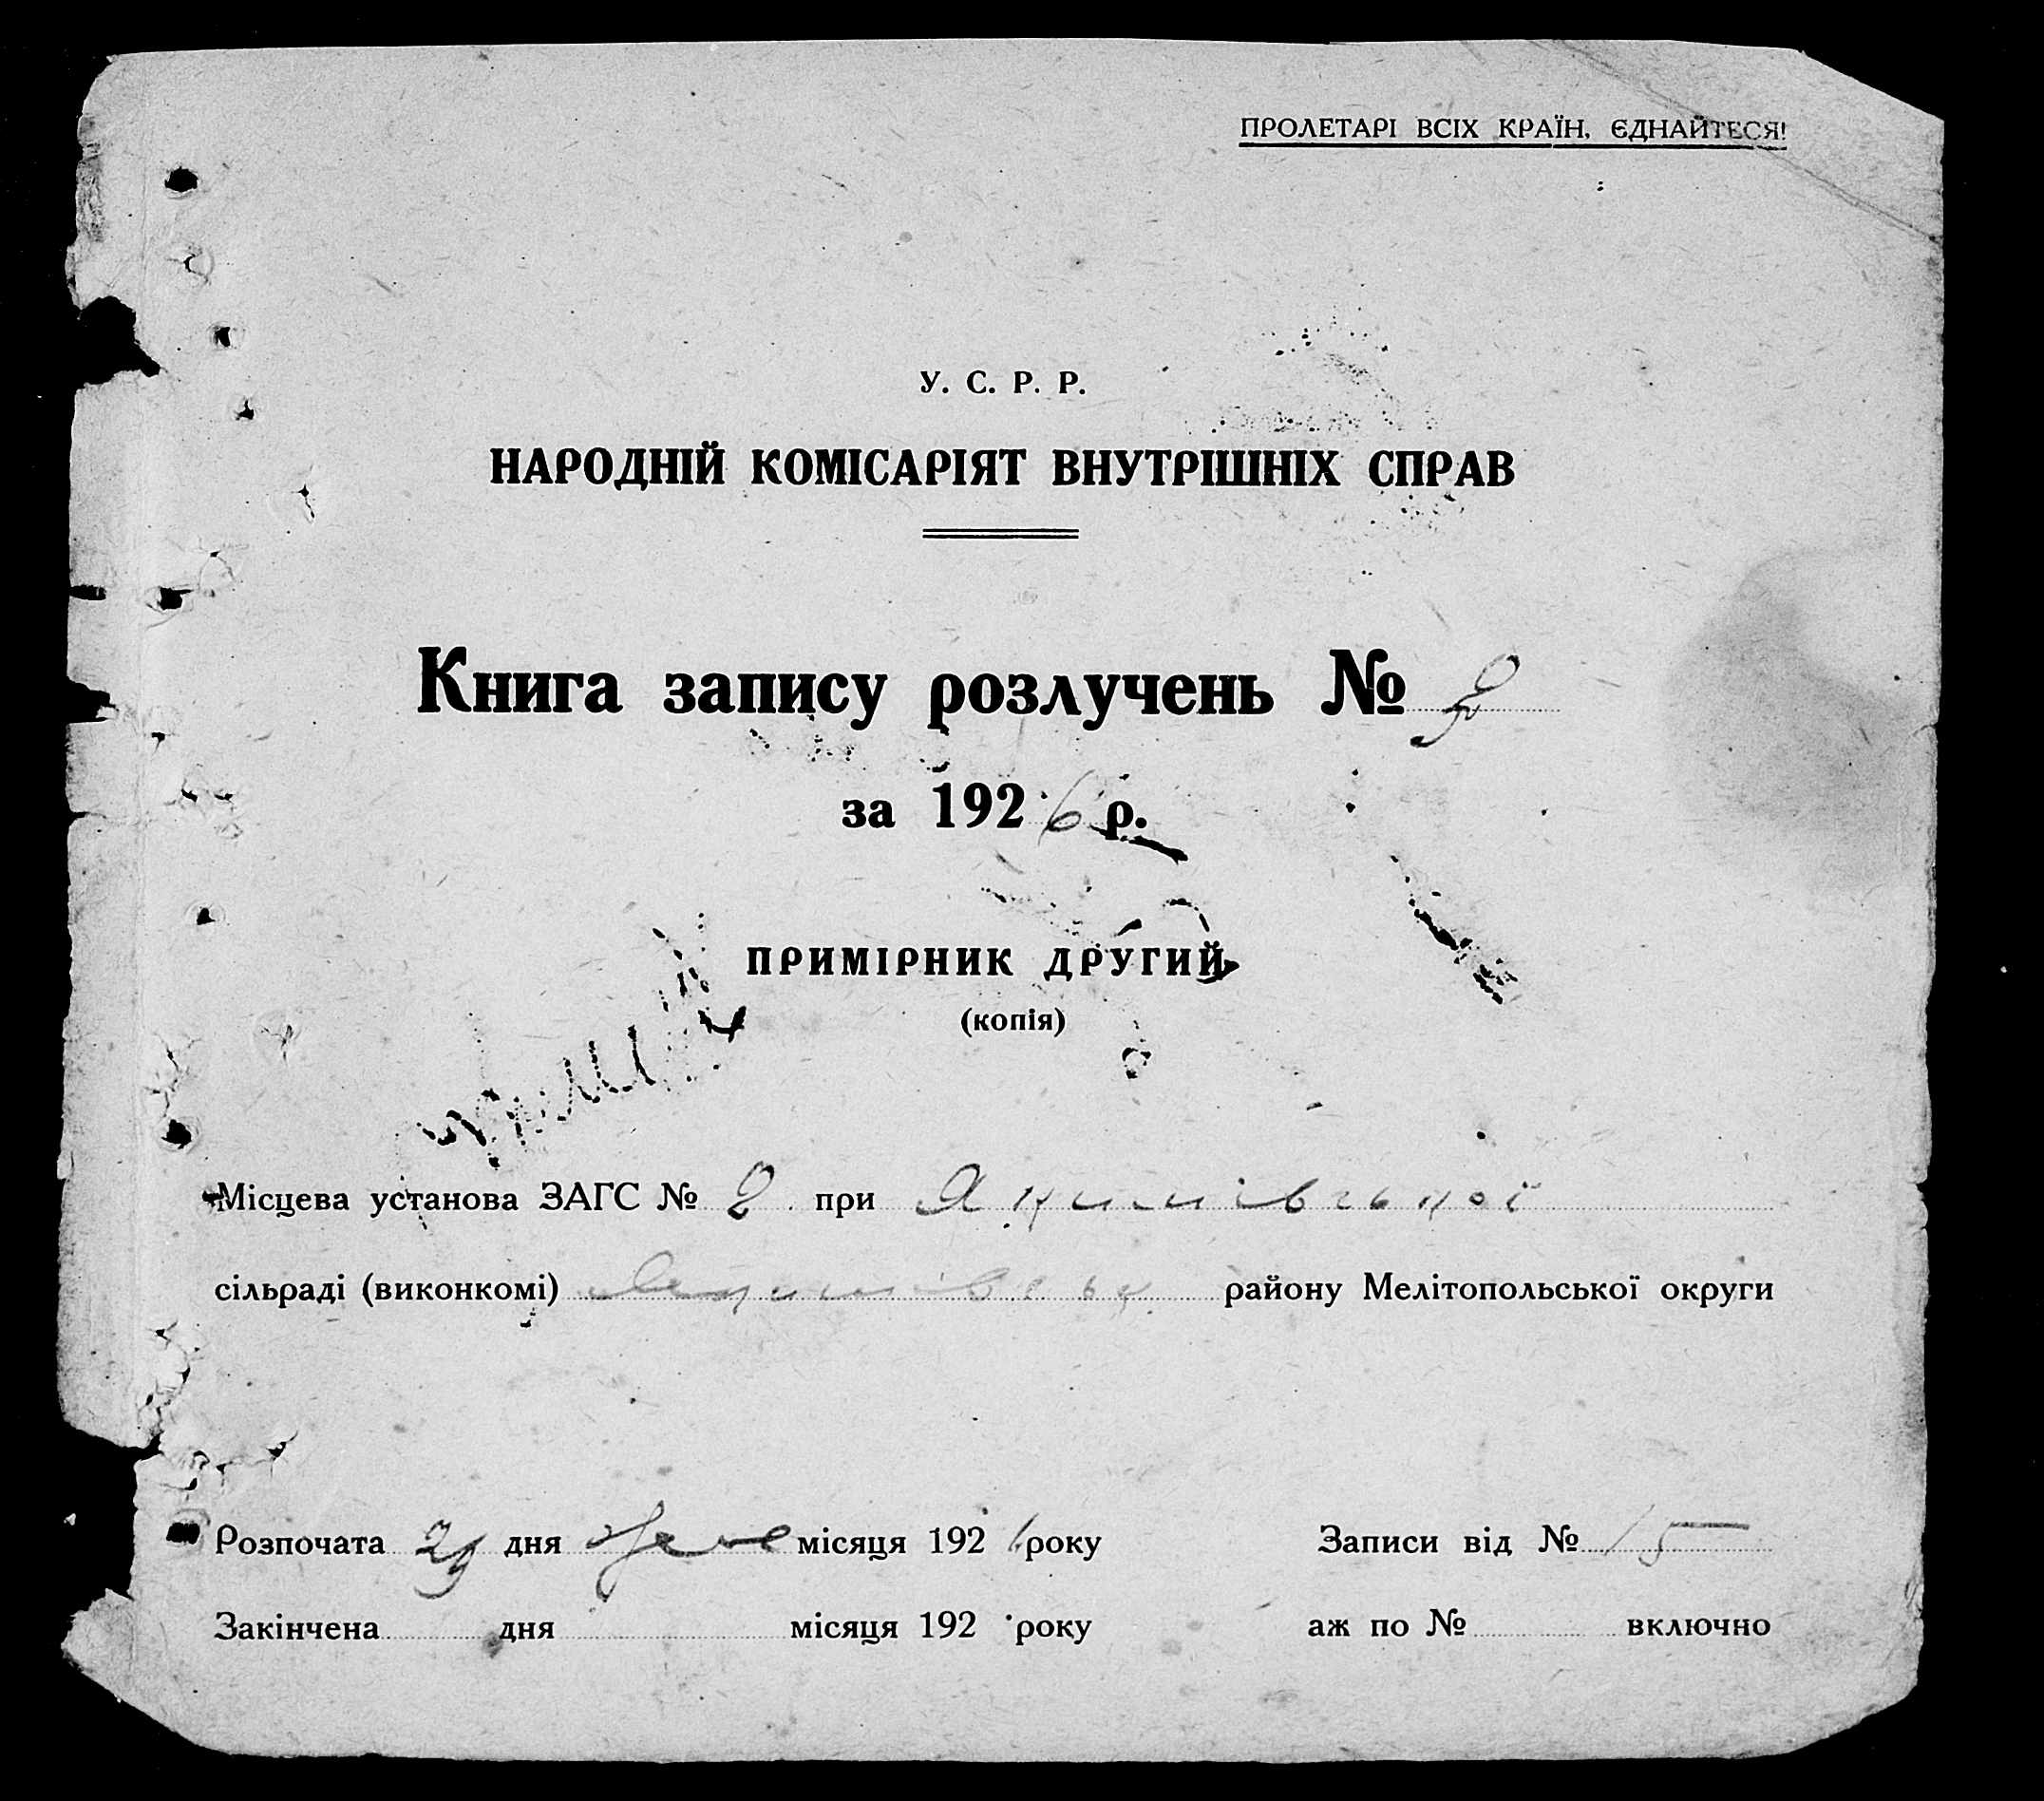 ПРОЛЕТАРІ ВСІХ КРАЇН, ЄДНАЙТЕСЯ!
У. С. Р. Р.
НАРОДНІЙ КОМІСАРІЯТ ВНУТРІШНІХ СПРАВ
Книга запису розлучень № 2
за 1926 р.
ПРИМІРНИК ДРУГИЙ
(копія)
Місцева установа ЗАГС № 2 при Якимівської
сільраді (виконкомі) Якимівськ. району Мелітопольської округи
Розпочата 29 дня місяця 1926 року Записи від № 15
Закінчена дня місяця 192 року аж по № включно